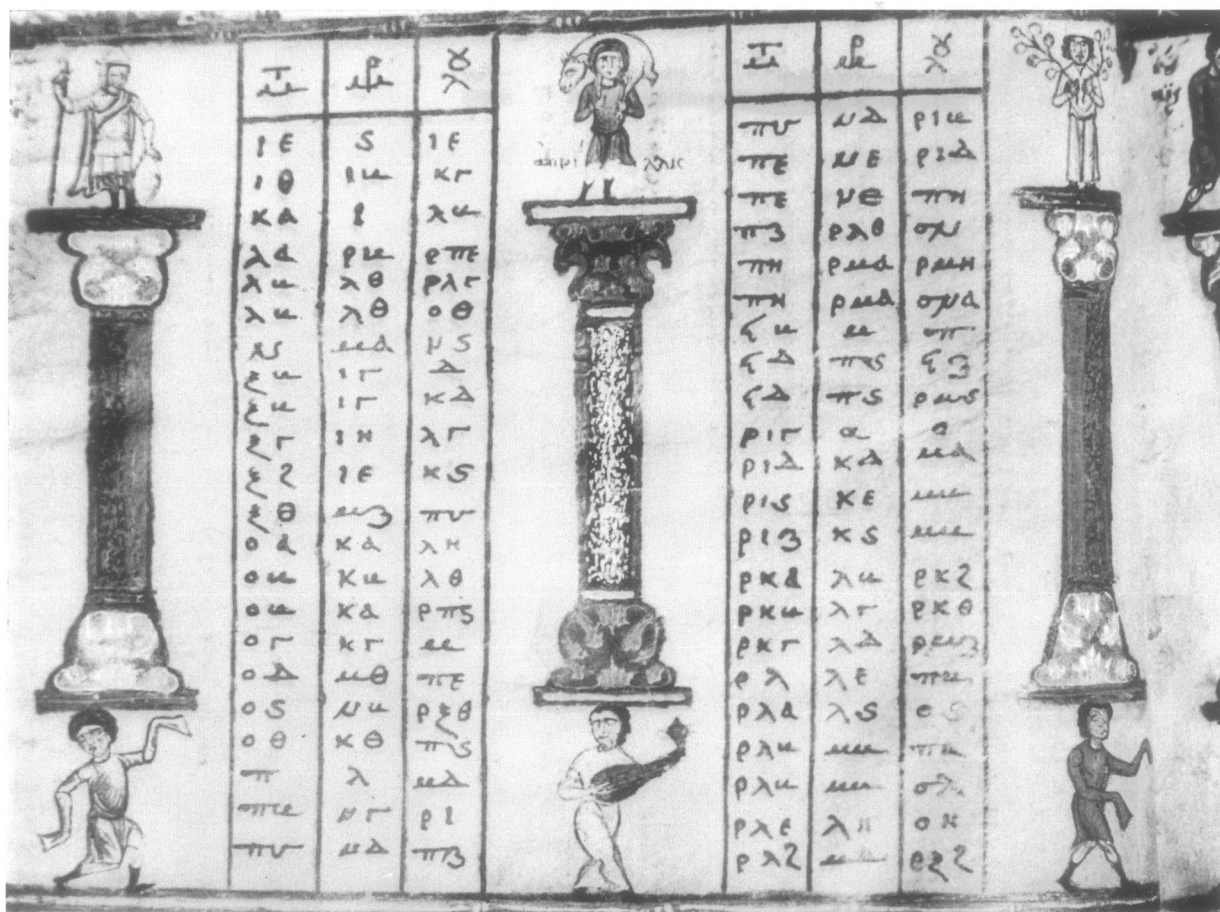 Μτ Μρ Λγ
ιε ς ιε
ιθ ιβ κγ
κα ι λβ
λα ρβ ρπε
λβ λθ ρλγ
λβ λθ οθ
λς μα νς
ξβ ιγ δ
ξβ ιγ κδ
ξγ ιη λγ
ξζ ιε κς
ξθ μζ πγ
οα κα λη
οβ κβ λθ
οβ κα ρπς
ογ κγ μ
οδ μθ πε
ος νβ ρξθ
οθ κθ πς
π λ μδ
πβ νγ ρι
πγ νδ πζ
Μτ Μρ Λγ
πγ νδ ριβ
πε νε ριδ
πε νε πη
πζ ρλθ σν
πη ρμα ρμη
πη ρμα σνα
ϟβ μ σπ
ϟδ πς ϟζ
ϟδ πς ρμς
ριγ α ο
ριδ κδ μα
ρις κε μβ
ριζ κς μγ
ρκα λβ ρκζ
ρκβ λγ ρκθ
ρκγ λδ ρμζ
ρλ λε πβ
ρλα λς ος
ρλβ πβ
ρλβ σλ
ρλε λη οη
ρλζ ρξζ